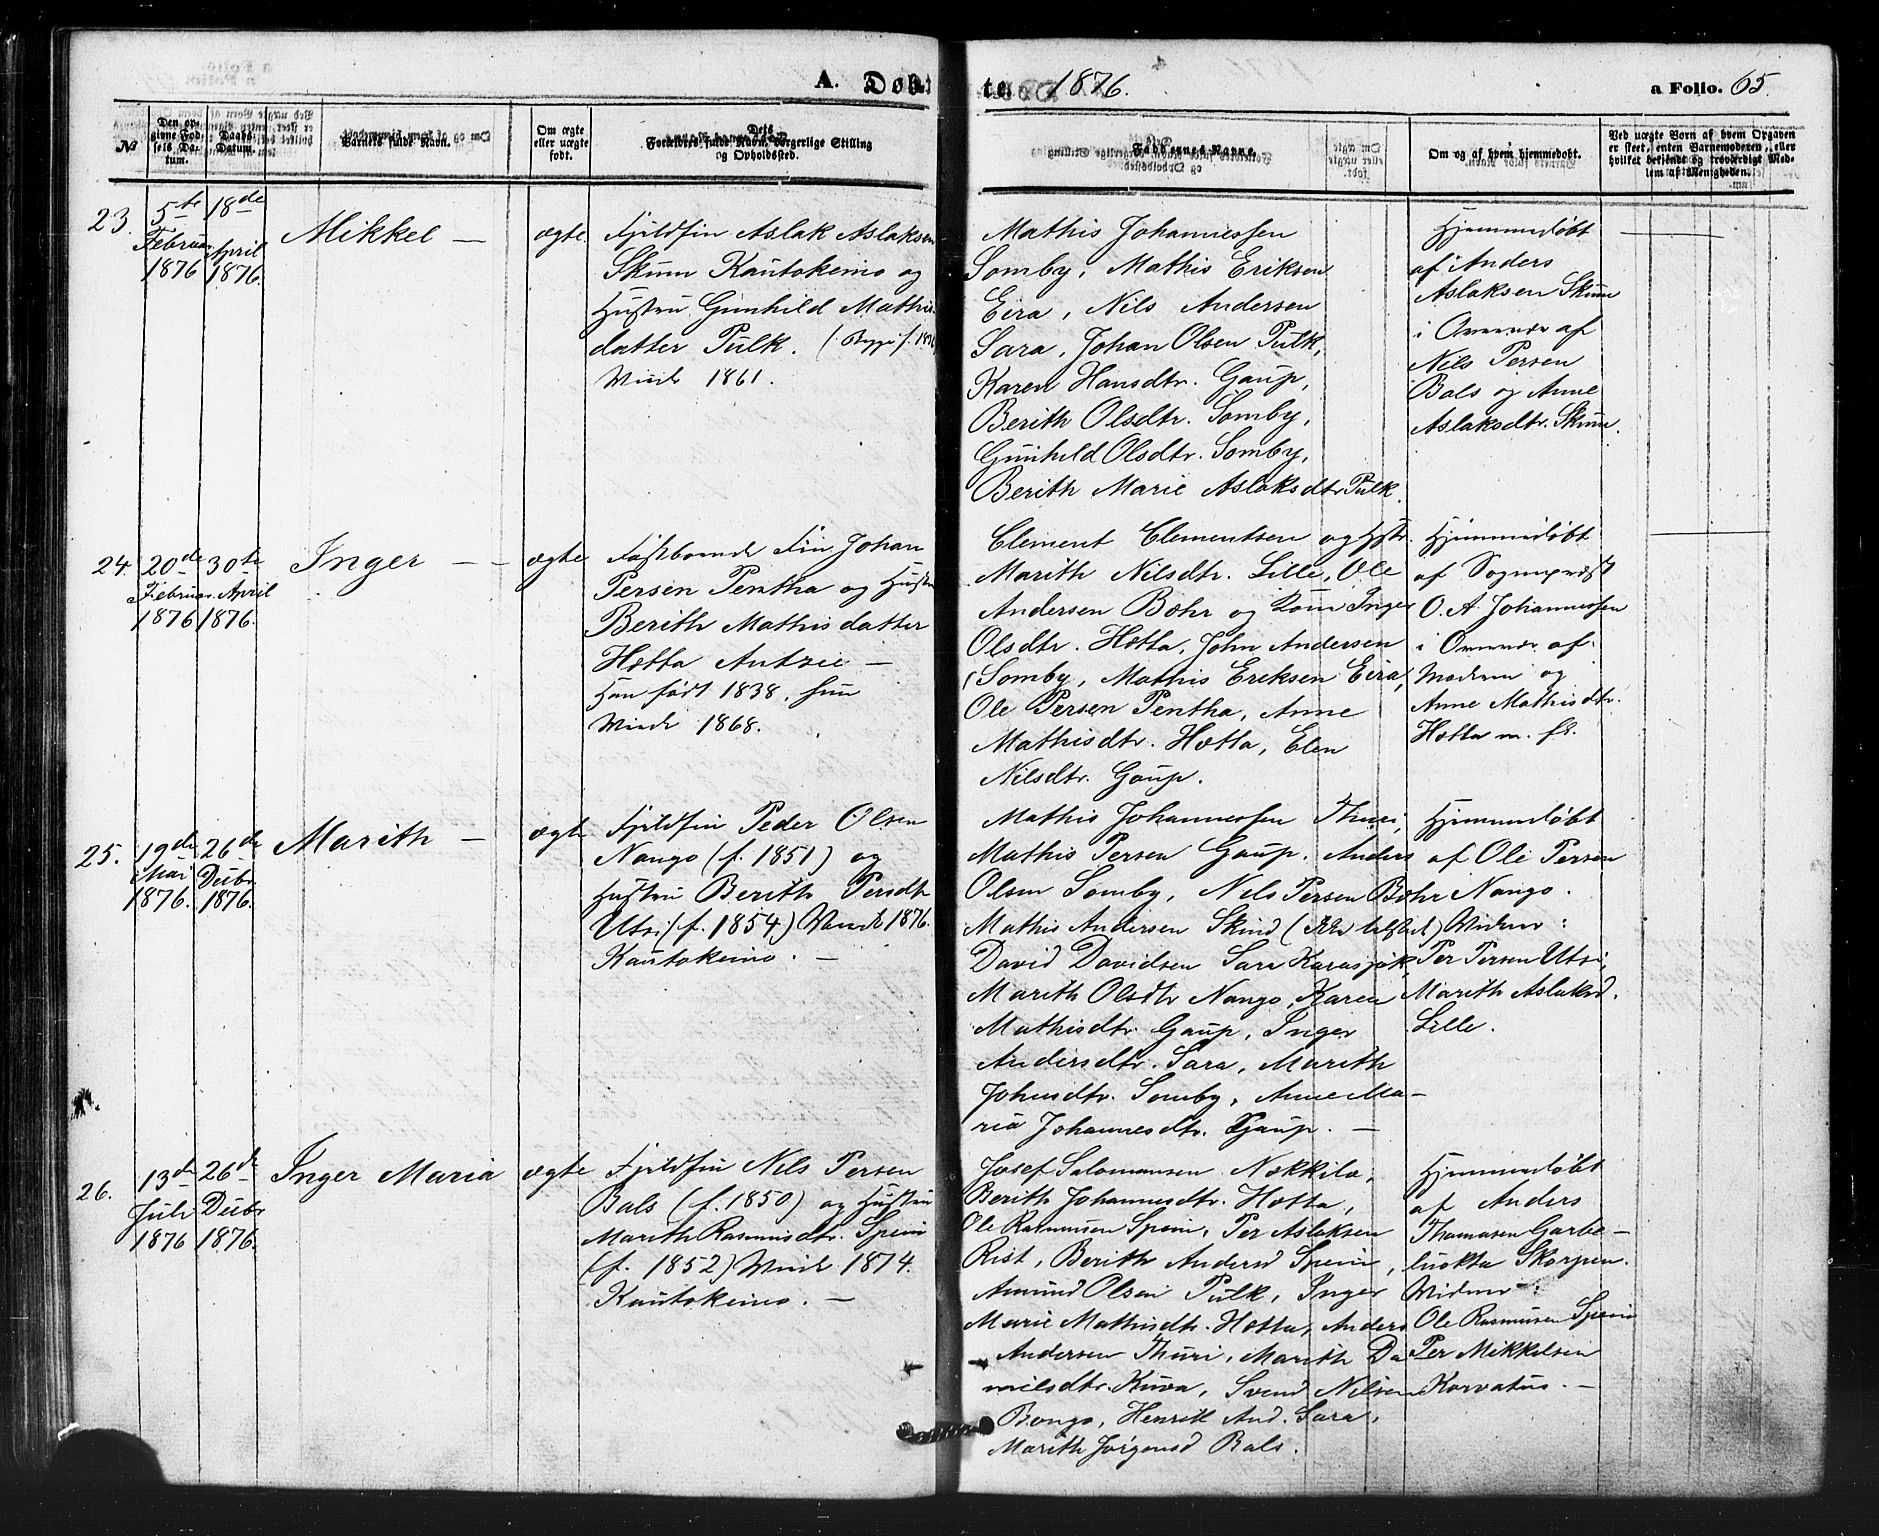 A. Døbte. 1876. a Folio. 65.
№ | Den opgivne Fødsels Datum. | Daabs Datum. | Barnets fulde Navn. | Om ægte eller uægte født. | Forældres fulde Navn, borgerlige Stilling og Opholdssted. | Faddernes Navne. | Om og af hvem hjemmedøbt. | Ved uægte Børn af hvem Opgaven er skeet, enten Barnemoderen, eller hvilket bekjendt og troværdigt Medlem af Menigheden.
23.
5te
Februar
1876
18de
April
1876.
Mikkel —
ægte
Fjeldfin Aslak Aslaksen
Skum Kautokeino og
Hustru Gunhild Mathis
datter Pulk.
1861.
Mathis Johannessen
Somby, Mathis Eriksen
Eira, Nils Andersen
Sara, Johan Olsen Pulk,
Karen Hansdtr. Gaup,
Berith Olsdtr. Somby,
Gunhild Olsdtr. Somby,
Berith Marie Aslaksdtr Pulk.
Hjemmedøbt
af Anders
Aslaksen Skum
i Overvær af
Nils Persen
Bals og Anne
Aslaksdtr. Skum.
24.
20de
Februar
1876
30te
April
1876.
Inger — —
ægte
Fastboende Fin Johan
Persen Pentha og Hustru
Berith Mathisdatter
Hætta Autzie —
Han født 1838, hun
1868.
Clement Clementsen og Hstr.
Marith Nilsdtr. Lille, Ole
Andersen Bohr og Kone Inger
Olsdtr. Hætta, John Andersen
Somby, Mathis Eriksen Eira,
Ole Persen Pentha, Anne
Mathisdtr. Hætta, Elen
Nilsdtr. Gaup.
Hjemmedøbt
af Sognepræst
O. A. Johannessen
i Overvær af
Moderen og
Anne Mathisdtr.
Hætta m. fl.
25.
19de
Mai
1876.
26de
Decbr
1876.
Marith —
ægte
Fjeldfin Peder Olsen
Nango (f. 1851) og
Hustru Berith Persdtr
Utsi (f. 1854) 1876.
Kautokeino. —
Mathis Johannessen Thuri,
Mathis Persen Gaup. Anders
Olsen Somby, Nils Persen Bohr
Mathis Andersen Skind
David Davidsen Sara Karasjok,
Marith Olsdtr Nango, Karen
Mathisdtr. Gaup, Inger
Andersdtr. Sara, Marith
Johnsdtr. Somby, Anne Ma-
ria Johannesdtr. Gaup. —
Hjemmedøbt
af Ole Persen
Nango.
Vidner:
Per Persen Utsi,
Marith Aslaksd.
Lille.
26.
13de
Juli
1876
26de
Decbr
1876.
Inger Maria
ægte
Fjeldfin Nils Persen
Bals (f. 1850) og Hustru
Marith Rasmusdtr. Spein
(f. 1852) 1874.
Kautokeino. —
Josef Salomonsen Nækkila,
Berith Johannesdtr. Hætta,
Ole Rasmusen Spein, Per Aslaksen
Rist, Berith Andersd Spein,
Amund Olsen Pulk, Inger
Marie Mathisdtr. Hætta, Anders
Andersen Thuri, Marith Da
nielsdtr. Kuva, Svend Nilsen
Bongo, Henrik And. Sara,
Marith Jørgensd Bals.
Hjemmedøbt
af Anders
Thomasen Garbe-
luokta Skorpen.
Vidner:
Ole Rasmusen Spein
Per Mikkelsen
Korvatus. —